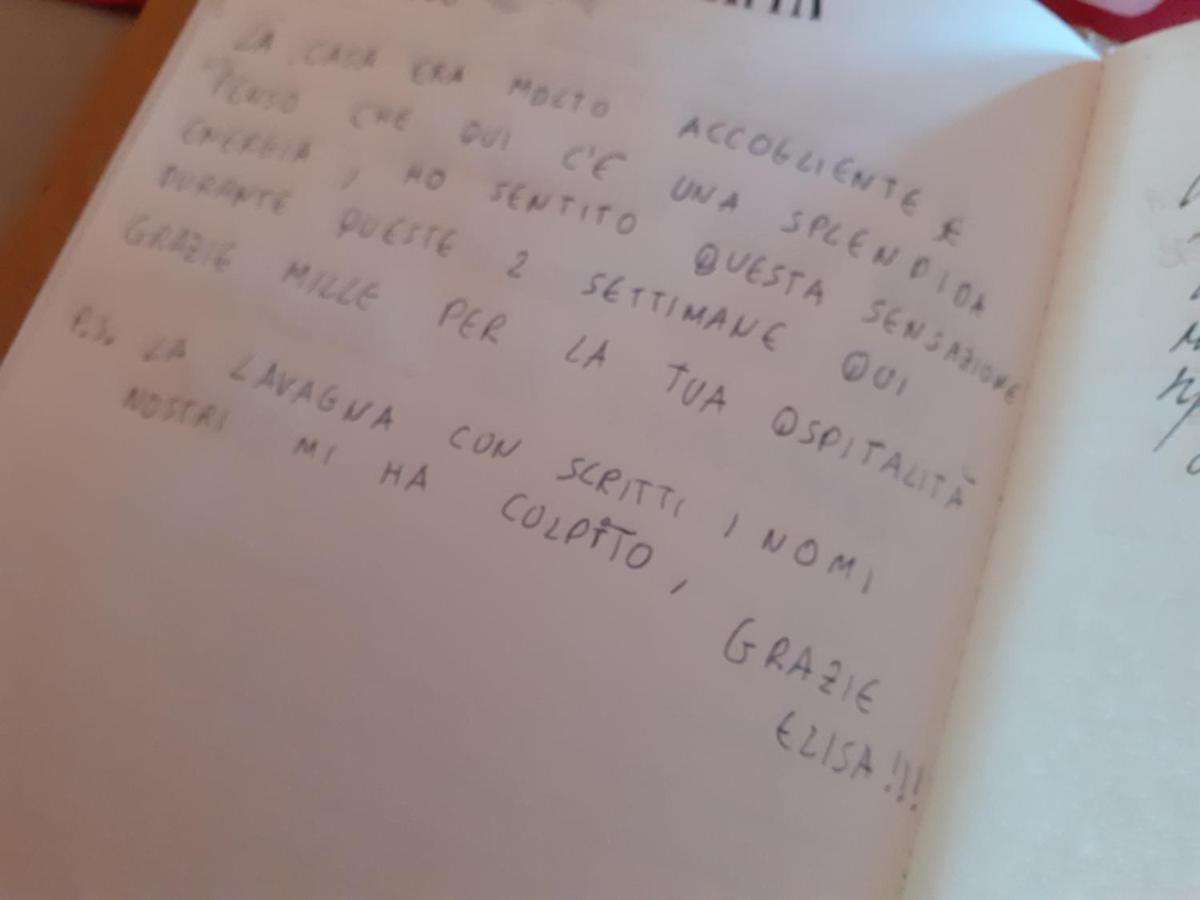 LA CASA ERA MOLTO ACCOGLIENTE E
PENSO CHE QUI C'È UNA SPLENDIDA
ENERGIA, HO SENTITO QUESTA SENSAZIONE
DURANTE QUESTE 2 SETTIMANE QUI
GRAZIE MILLE PER LA TUA OSPITALITÀ
P.S. LA LAVAGNA CON SCRITTI I NOMI
NOSTRI MI HA COLPITO,
GRAZIE
ELISA!!!